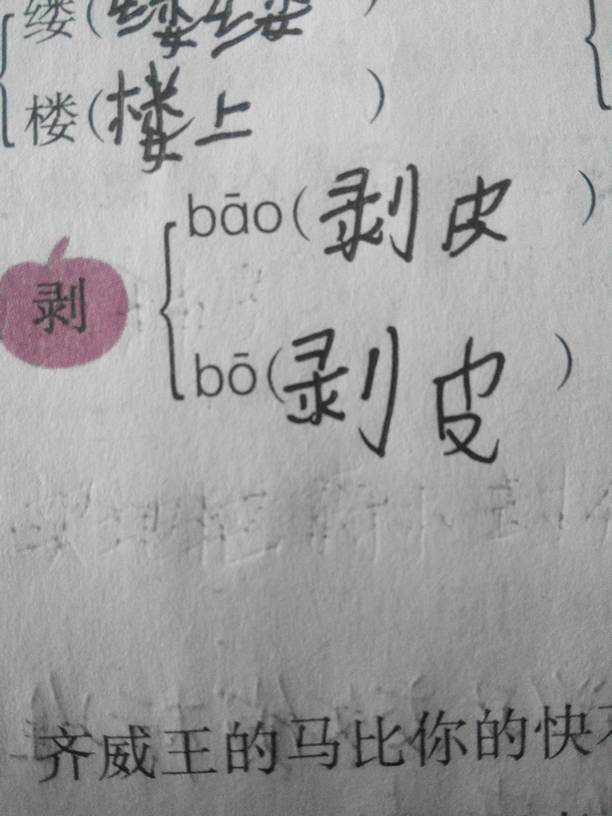 缕(缕缕)
楼(楼上)
bāo(剥皮)
剥
bō(剥皮)
齐威王的马比你的快